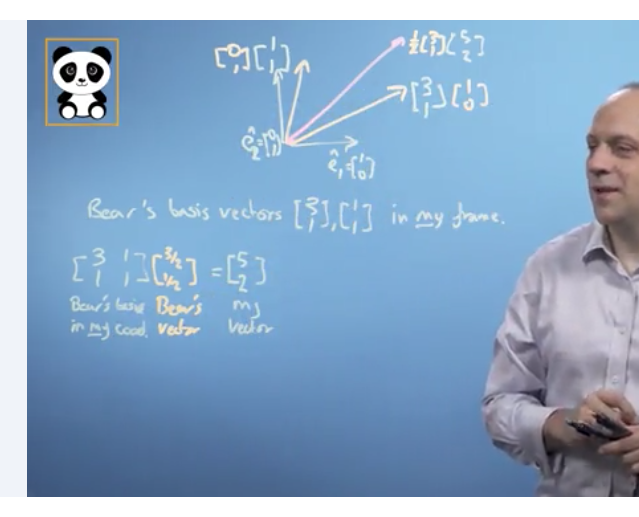 [0 1] [1 1] ½[3 1] [5 2]
[3 1] [1 0]
ê₂=[0 1]
ê₁=[1 0]
Bear's basis vectors [3 1], [1 1] in my frame.
[3 1 1 1] [3/2 1/2] = [5 2]
Bear's basis Bear's my
in my coord. vector vector